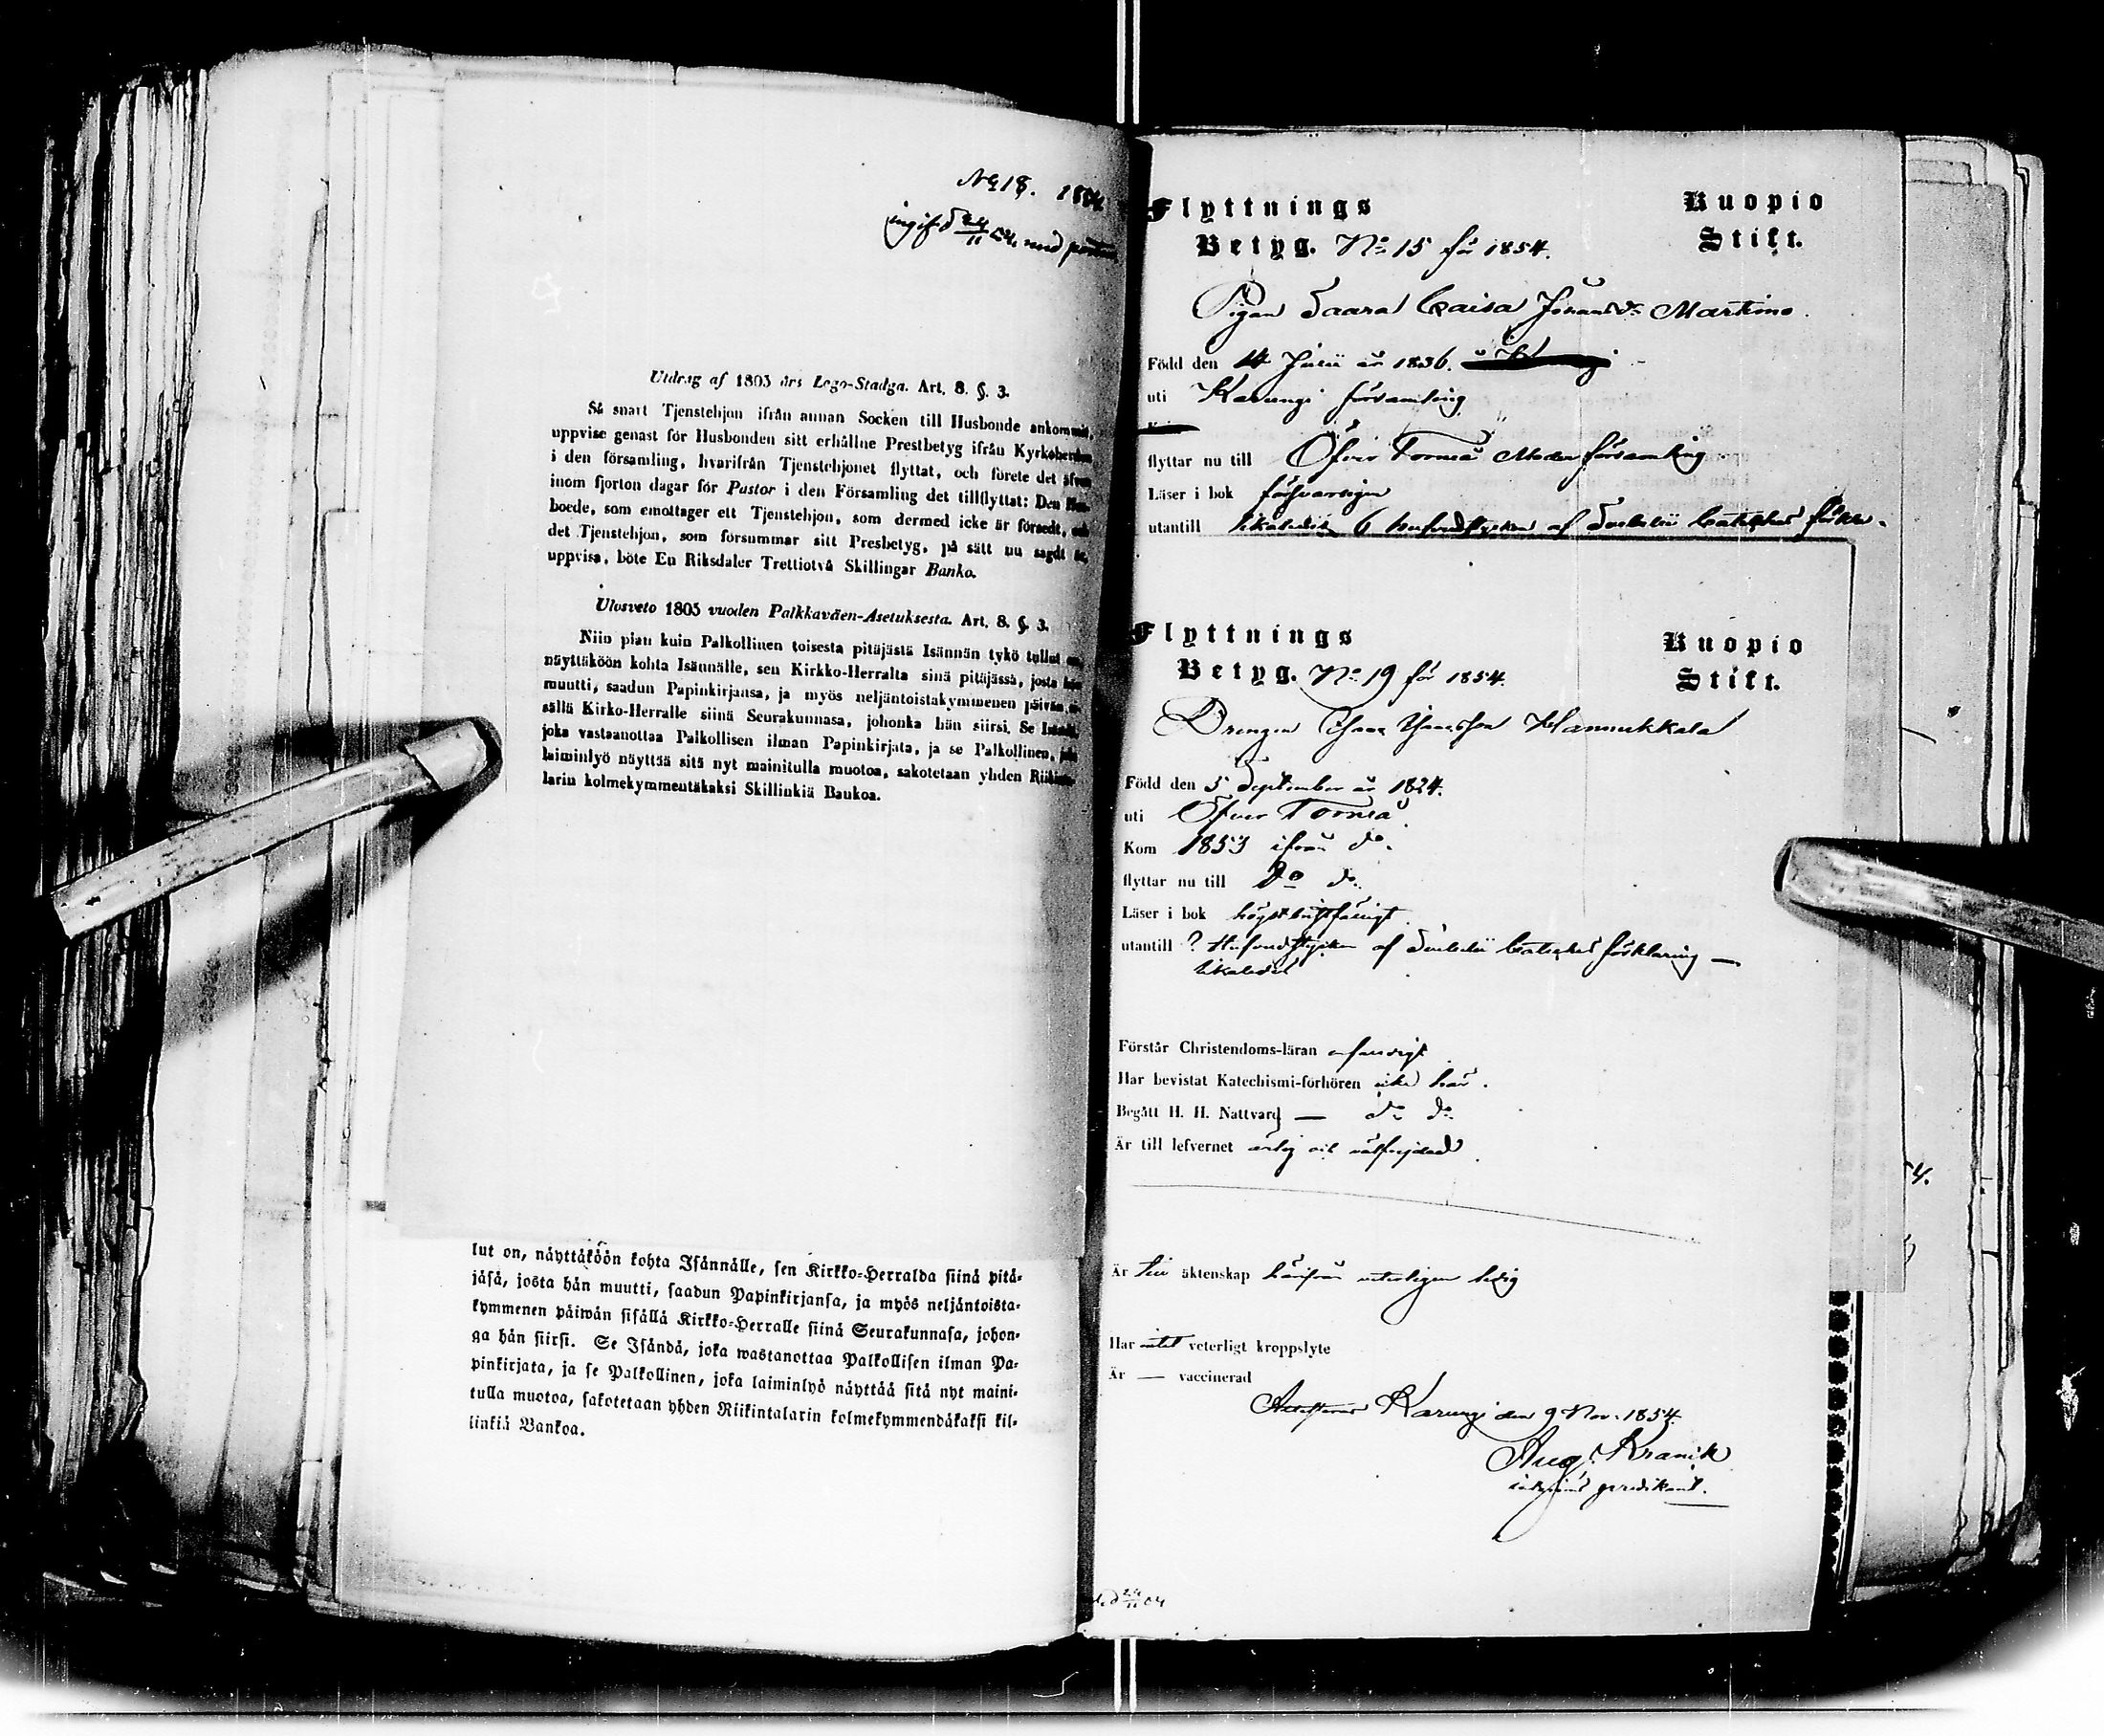 No 18. 1854.
Utdrag af 1805 års Lego-Stadga. Art. 8. §. 3.
Så snart Tjenstehjon ifrån annan Socken till Husbonde ankommit,
uppvise genast för Husbonden sitt erhållne Prestbetyg ifrån Kyrkoherden
i den församling, hvarifrån Tjenstehjonet flyttat, och förete det äfven
inom fjorton dagar för Pastor i den Församling det tillflyttat: Den Hus-
boede, som emottager ett Tjenstehjon, som dermed icke är försedt, och
det Tjenstehjon, som försummar sitt Presbetyg, på sätt nu sagdt är,
uppvisa, böte En Riksdaler Trettiotvå Skillingar Banko.
Ulosveto 1805 vuoden Palkkaväen-Asetuksesta. Art. 8. §. 3.
Niin pian kuin Palkollinen toisesta pitäjästä Isännän tykö tullut on,
näyttäköön kohta Isännälle, sen Kirkko-Herralta sinä pitäjässä, josta hän
muutti, saadun Papinkirjansa, ja myös neljäntoistakymmenen päivän si-
sällä Kirko-Herralle siinä Seurakunnasa, johonka hän siirsi. Se Isändä,
joka vastaanottaa Palkollisen ilman Papinkirjata, ja se Palkollinen, joka
laiminlyö näyttää sitä nyt mainitulla muotoa, sakotetaan yhden Riikinta-
larin kolmekymmentäkaksi Skillinkiä Baukoa.
lut on, näyttäköön kohta Isännälle, sen Kirkko-Herralda siinä pitä-
jäsä, josta hän muutti, saadun Papinkirjansa, ja myös neljäntoista-
kymmenen päiwän sisällä Kirkko-Herralle siinä Seurakunnasa, johon-
ga hän siirsi. Se Isändä, joka wastanottaa Palkollisen ilman Pa-
pinkirjata, ja se Palkollinen, joka laiminlyö näyttää sitä nyt maini-
tulla muotoa, sakotetaan yhden Riikintalarin kolmekymmendäkaksi kil-
linkiä Bankoa.
Flyttnings Kuopio
Betyg. No 15 för 1854. Stift.
Pigan Saara Caisa Johansdr Martimo.
Född den 14 Julii år 1836.
uti Karungi församling
flyttar nu till Öfver Torneå Moderförsamling
Läser i bok försvarligen
utantill likaledes 6 hufvudstycken af Svebelii Cateches förkla-
Flyttnings Kuopio
Betyg. No 19 för 1854. Stift.
Drengen Hannukkala
Född den 5 September år 1824.
uti Öfver Torneå
Kom 1853 ifrån do.
flyttar nu till Do do.
Läser i bok högst bristfälligt
utantill ? Hufvudstycken af Svebelii Cateches förklaring —
likaledes
Förstår Christendoms-läran
Har bevistat Katechismi-förhören icke här.
Begått H. H. Nattvard — do do
Är till lefvernet ärlig och välfrejdad
Är till äktenskap härifrån veterligen ledig
Har intet veterligt kroppslyte
Är — vaccinerad
Attesterar Karungi den 9 Nov. 1854.
Aug. Kranck
predikant.